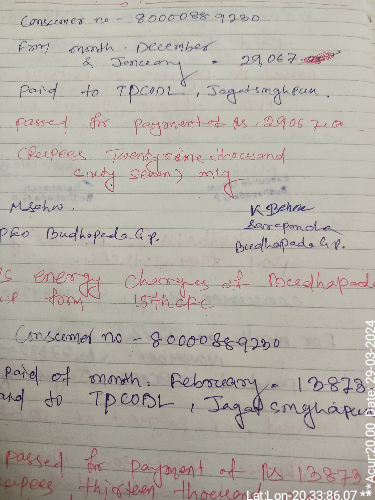 Consumer no - 80000889230
From month - December
& Janueary = 29,067
Paid to TPCODL, Jagatsinghpur.
Passed for payment of Rs. 29067.00
(Rupees Twenty nine thousand
sixty seven) only
K Behera
Sarapancha
PEO Budhapada G.P.
Budhapada G.P.
energy Charges of
form 15th CFC
Consumer no - 80000889230
paid of month. February = 13873
and to TPCODL, Jagatsinghapur
passed for payment of Rs 13873
Rupees thirteen thousand
Lat Lon-20.33:86.07 ** Acur:20.00 Date:29-03-2024